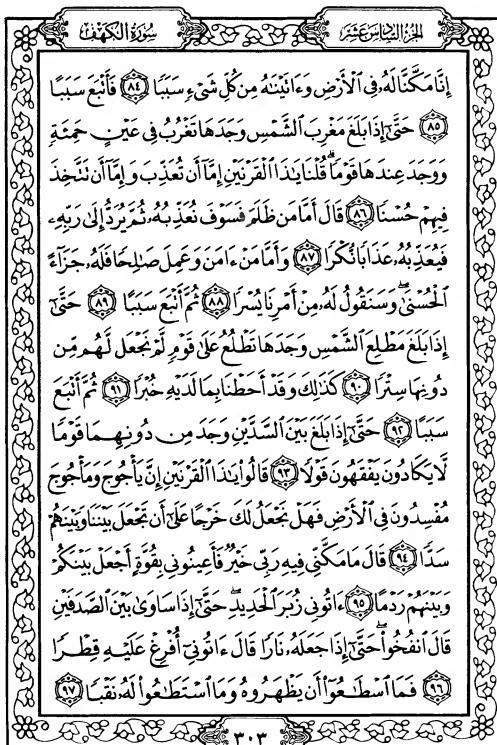 سُورَةُ الكَهْفِ الجُزْءُ السَّادِسَ عَشَرَ
إِنَّا مَكَّنَّا لَهُۥ فِى ٱلْأَرْضِ وَءَاتَيْنَٰهُ مِن كُلِّ شَىْءٍ سَبَبًا ٨٤ فَأَتْبَعَ سَبَبًا
٨٥ حَتَّىٰٓ إِذَا بَلَغَ مَغْرِبَ ٱلشَّمْسِ وَجَدَهَا تَغْرُبُ فِى عَيْنٍ حَمِئَةٍ
وَوَجَدَ عِندَهَا قَوْمًا ۗ قُلْنَا يَٰذَا ٱلْقَرْنَيْنِ إِمَّآ أَن تُعَذِّبَ وَإِمَّآ أَن تَتَّخِذَ
فِيهِمْ حُسْنًا ٨٦ قَالَ أَمَّا مَن ظَلَمَ فَسَوْفَ نُعَذِّبُهُۥ ثُمَّ يُرَدُّ إِلَىٰ رَبِّهِۦ
فَيُعَذِّبُهُۥ عَذَابًا نُّكْرًا ٨٧ وَأَمَّا مَنْ ءَامَنَ وَعَمِلَ صَٰلِحًا فَلَهُۥ جَزَآءً
ٱلْحُسْنَىٰ ۖ وَسَنَقُولُ لَهُۥ مِنْ أَمْرِنَا يُسْرًا ٨٨ ثُمَّ أَتْبَعَ سَبَبًا ٨٩ حَتَّىٰٓ
إِذَا بَلَغَ مَطْلِعَ ٱلشَّمْسِ وَجَدَهَا تَطْلُعُ عَلَىٰ قَوْمٍ لَّمْ نَجْعَل لَّهُم مِّن
دُونِهَا سِتْرًا ٩٠ كَذَٰلِكَ وَقَدْ أَحَطْنَا بِمَا لَدَيْهِ خُبْرًا ٩١ ثُمَّ أَتْبَعَ
سَبَبًا ٩٢ حَتَّىٰٓ إِذَا بَلَغَ بَيْنَ ٱلسَّدَّيْنِ وَجَدَ مِن دُونِهِمَا قَوْمًا
لَّا يَكَادُونَ يَفْقَهُونَ قَوْلًا ٩٣ قَالُوا۟ يَٰذَا ٱلْقَرْنَيْنِ إِنَّ يَأْجُوجَ وَمَأْجُوجَ
مُفْسِدُونَ فِى ٱلْأَرْضِ فَهَلْ نَجْعَلُ لَكَ خَرْجًا عَلَىٰٓ أَن تَجْعَلَ بَيْنَنَا وَبَيْنَهُمْ
سَدًّا ٩٤ قَالَ مَا مَكَّنِّى فِيهِ رَبِّى خَيْرٌ فَأَعِينُونِى بِقُوَّةٍ أَجْعَلْ بَيْنَكُمْ
وَبَيْنَهُمْ رَدْمًا ٩٥ ءَاتُونِى زُبَرَ ٱلْحَدِيدِ ۖ حَتَّىٰٓ إِذَا سَاوَىٰ بَيْنَ ٱلصَّدَفَيْنِ
قَالَ ٱنفُخُوا۟ ۖ حَتَّىٰٓ إِذَا جَعَلَهُۥ نَارًا قَالَ ءَاتُونِىٓ أُفْرِغْ عَلَيْهِ قِطْرًا
٩٦ فَمَا ٱسْطَٰعُوٓا۟ أَن يَظْهَرُوهُ وَمَا ٱسْتَطَٰعُوا۟ لَهُۥ نَقْبًا ٩٧
٣٠٣